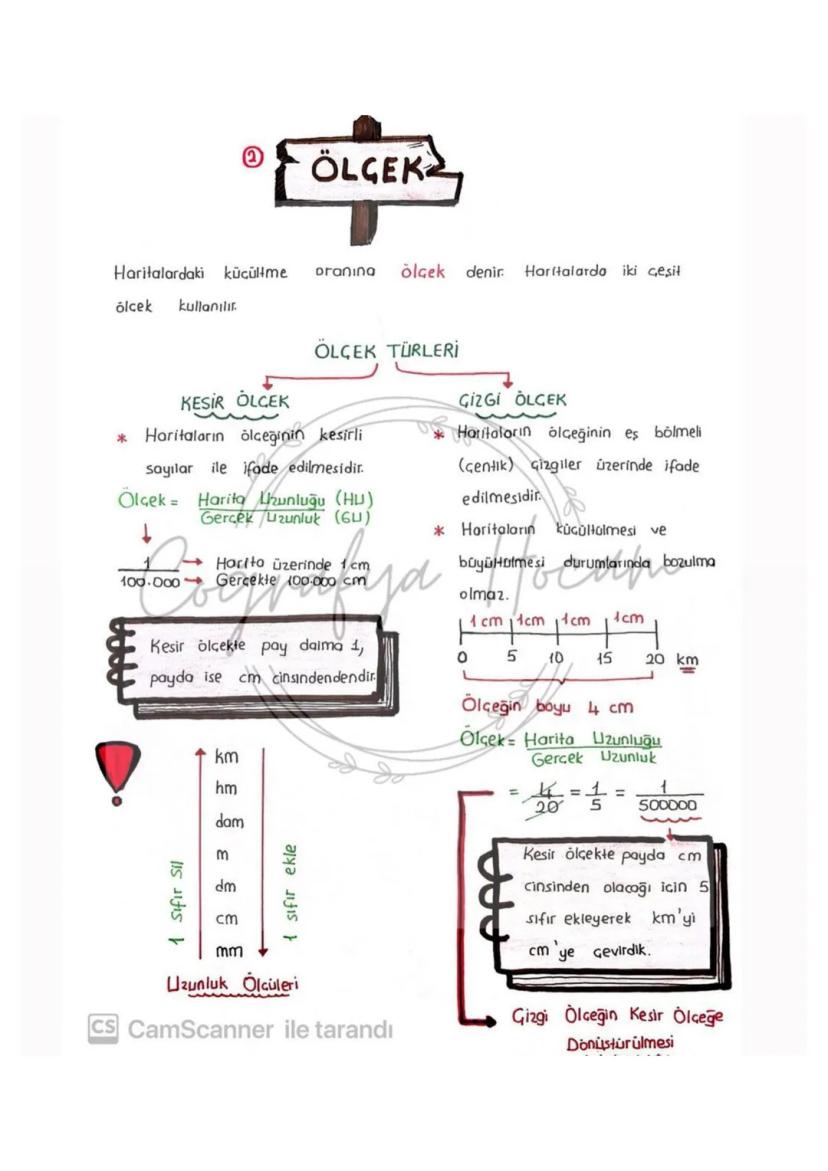 2
ÖLÇEK
Haritalardaki küçültme oranına ölçek denir. Haritalarda iki çeşit
ölçek kullanılır.
ÖLÇEK TÜRLERİ
KESİR ÖLÇEK
* Haritaların ölçeğinin kesirli
sayılar ile ifade edilmesidir.
Ölçek = Harita Uzunluğu (HU)
Gerçek Uzunluk (GU)
1 → Harita üzerinde 1 cm
100.000 → Gerçekte 100.000 cm
Kesir ölçekte pay daima 1,
payda ise cm cinsindendendir.
km
hm
dam
m
dm
cm
mm
1 sıfır sil
1 sıfır ekle
Uzunluk Ölçüleri
ÇİZGİ ÖLÇEK
* Haritaların ölçeğinin eş bölmeli
(çentik) çizgiler üzerinde ifade
edilmesidir.
* Haritaların küçültülmesi ve
büyültülmesi durumlarında bozulma
olmaz.
1 cm 1cm 1cm 1cm
0 5 10 15 20 km
Ölçeğin boyu 4 cm
Ölçek = Harita Uzunluğu
Gerçek Uzunluk
= 4/20 = 1/5 = 1/500000
Kesir ölçekte payda cm
cinsinden olacağı için 5
sıfır ekleyerek km'yi
cm'ye çevirdik.
Çizgi Ölçeğin Kesir Ölçeğe
Dönüştürülmesi
Coğrafya Hocam
CS CamScanner ile tarandı